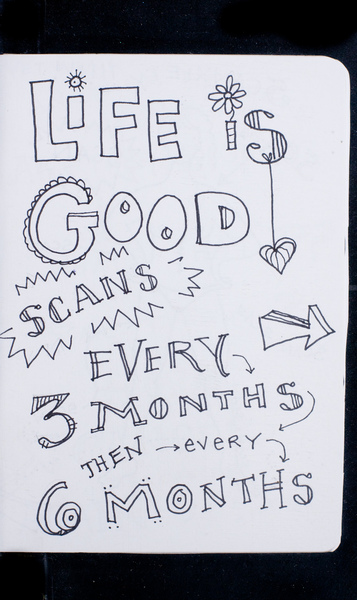 LiFE iS
GOOD
SCANS
EVERY
3 MONTHS
THEN → every
6 MONTHS